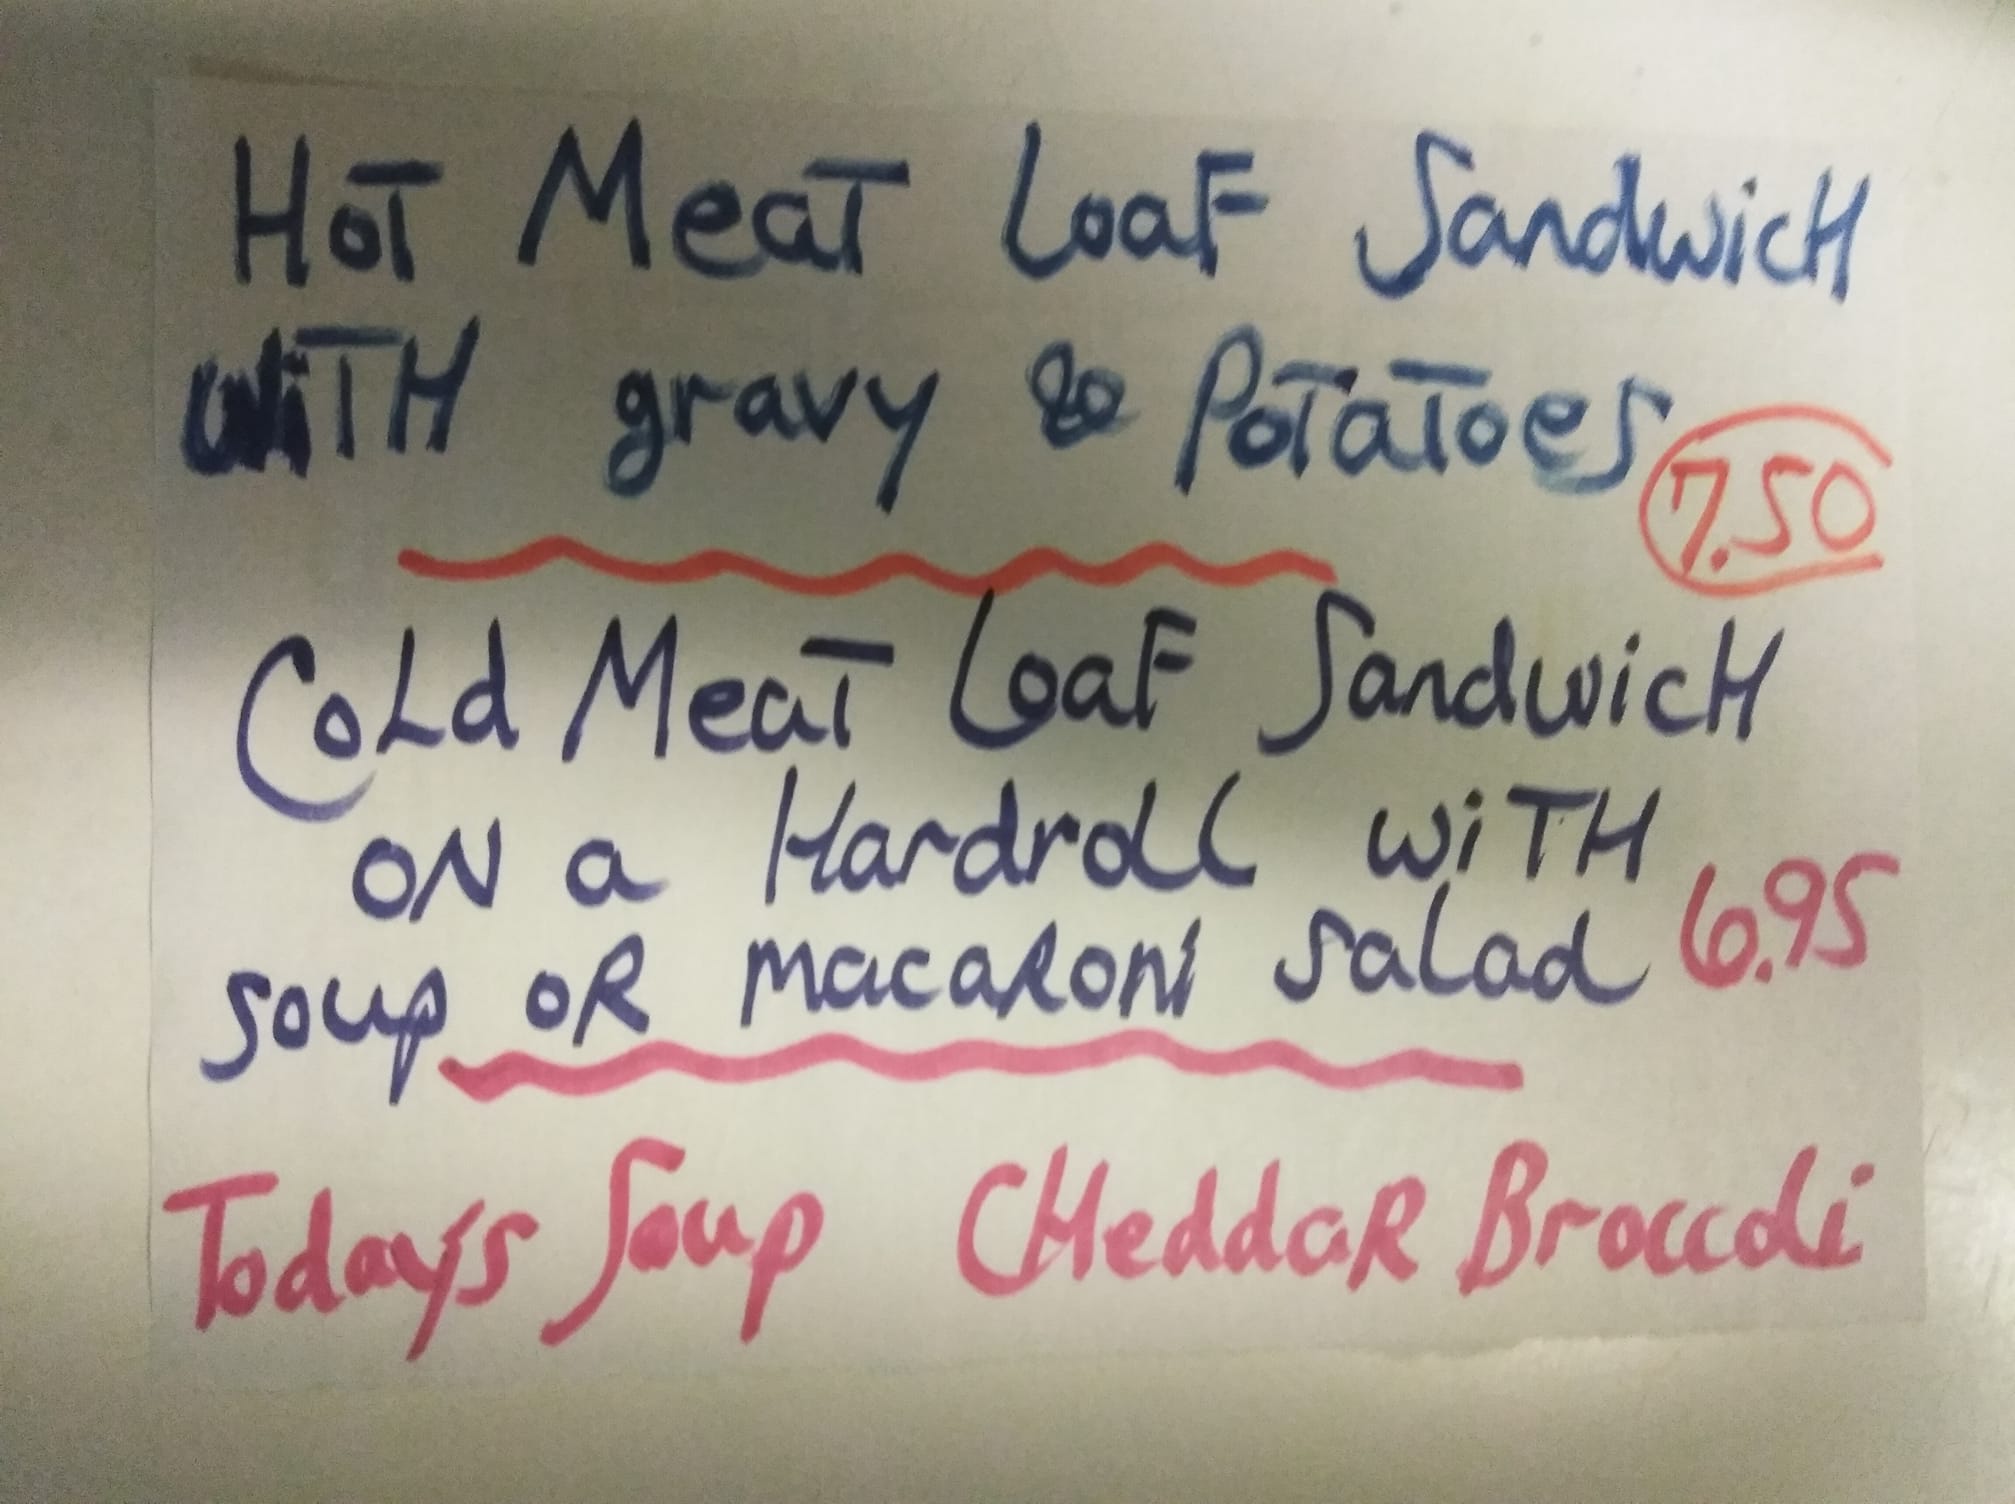 Hot Meat Loaf Sandwich
with gravy & Potatoes 7.50
Cold Meat Loaf Sandwich
on a Hardroll with
soup or macaroni salad 6.95
Today's Soup Cheddar Broccoli